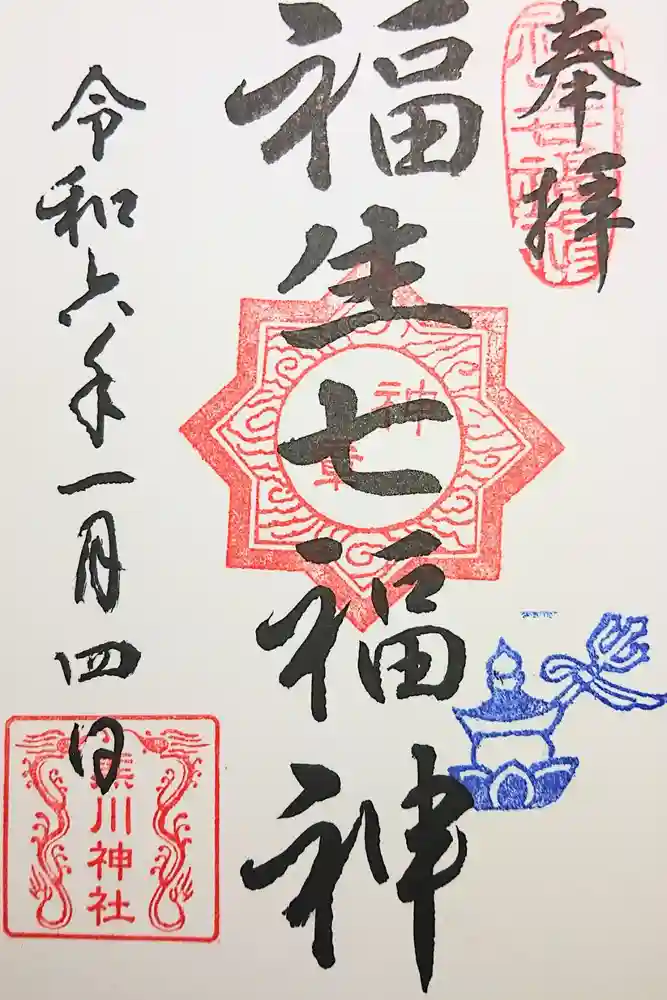 奉拝
福生七福神
神
章
令和六年一月四日
川神社